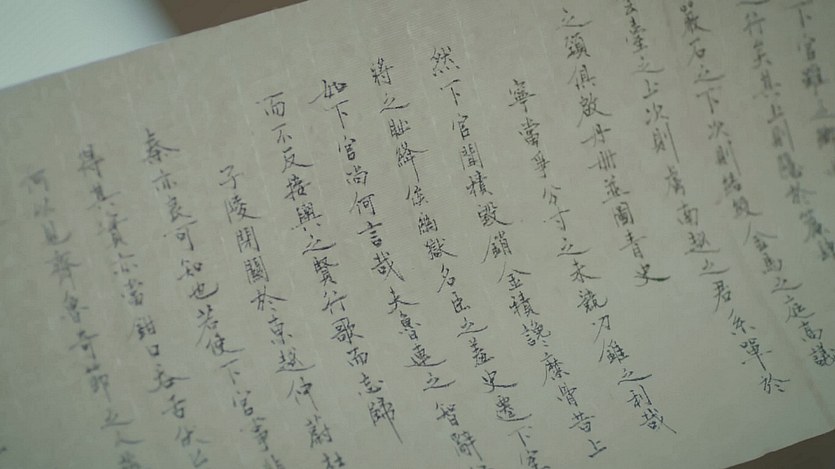 下官雖乏鄉
之行矣其上則隱於簾肆
巖石之下次則結綬金馬之庭高議
雲臺之上次則虜南越之君系單於
之頸俱啟丹冊並圖青史
寧當爭分寸之末競刀錐之利哉
然下官聞積毀銷金積讒糜骨昔上
將之恥絳侯幽獄名臣之羞史遷下室
如下官尚何言哉夫魯連之智辭
而不反接輿之賢行歌而忘歸
子陵閉關於東越仲蔚杜
秦亦良可知也若使下官事非
得其實亦當鉗口吞舌伏匕
何以見齊魯奇節之人燕